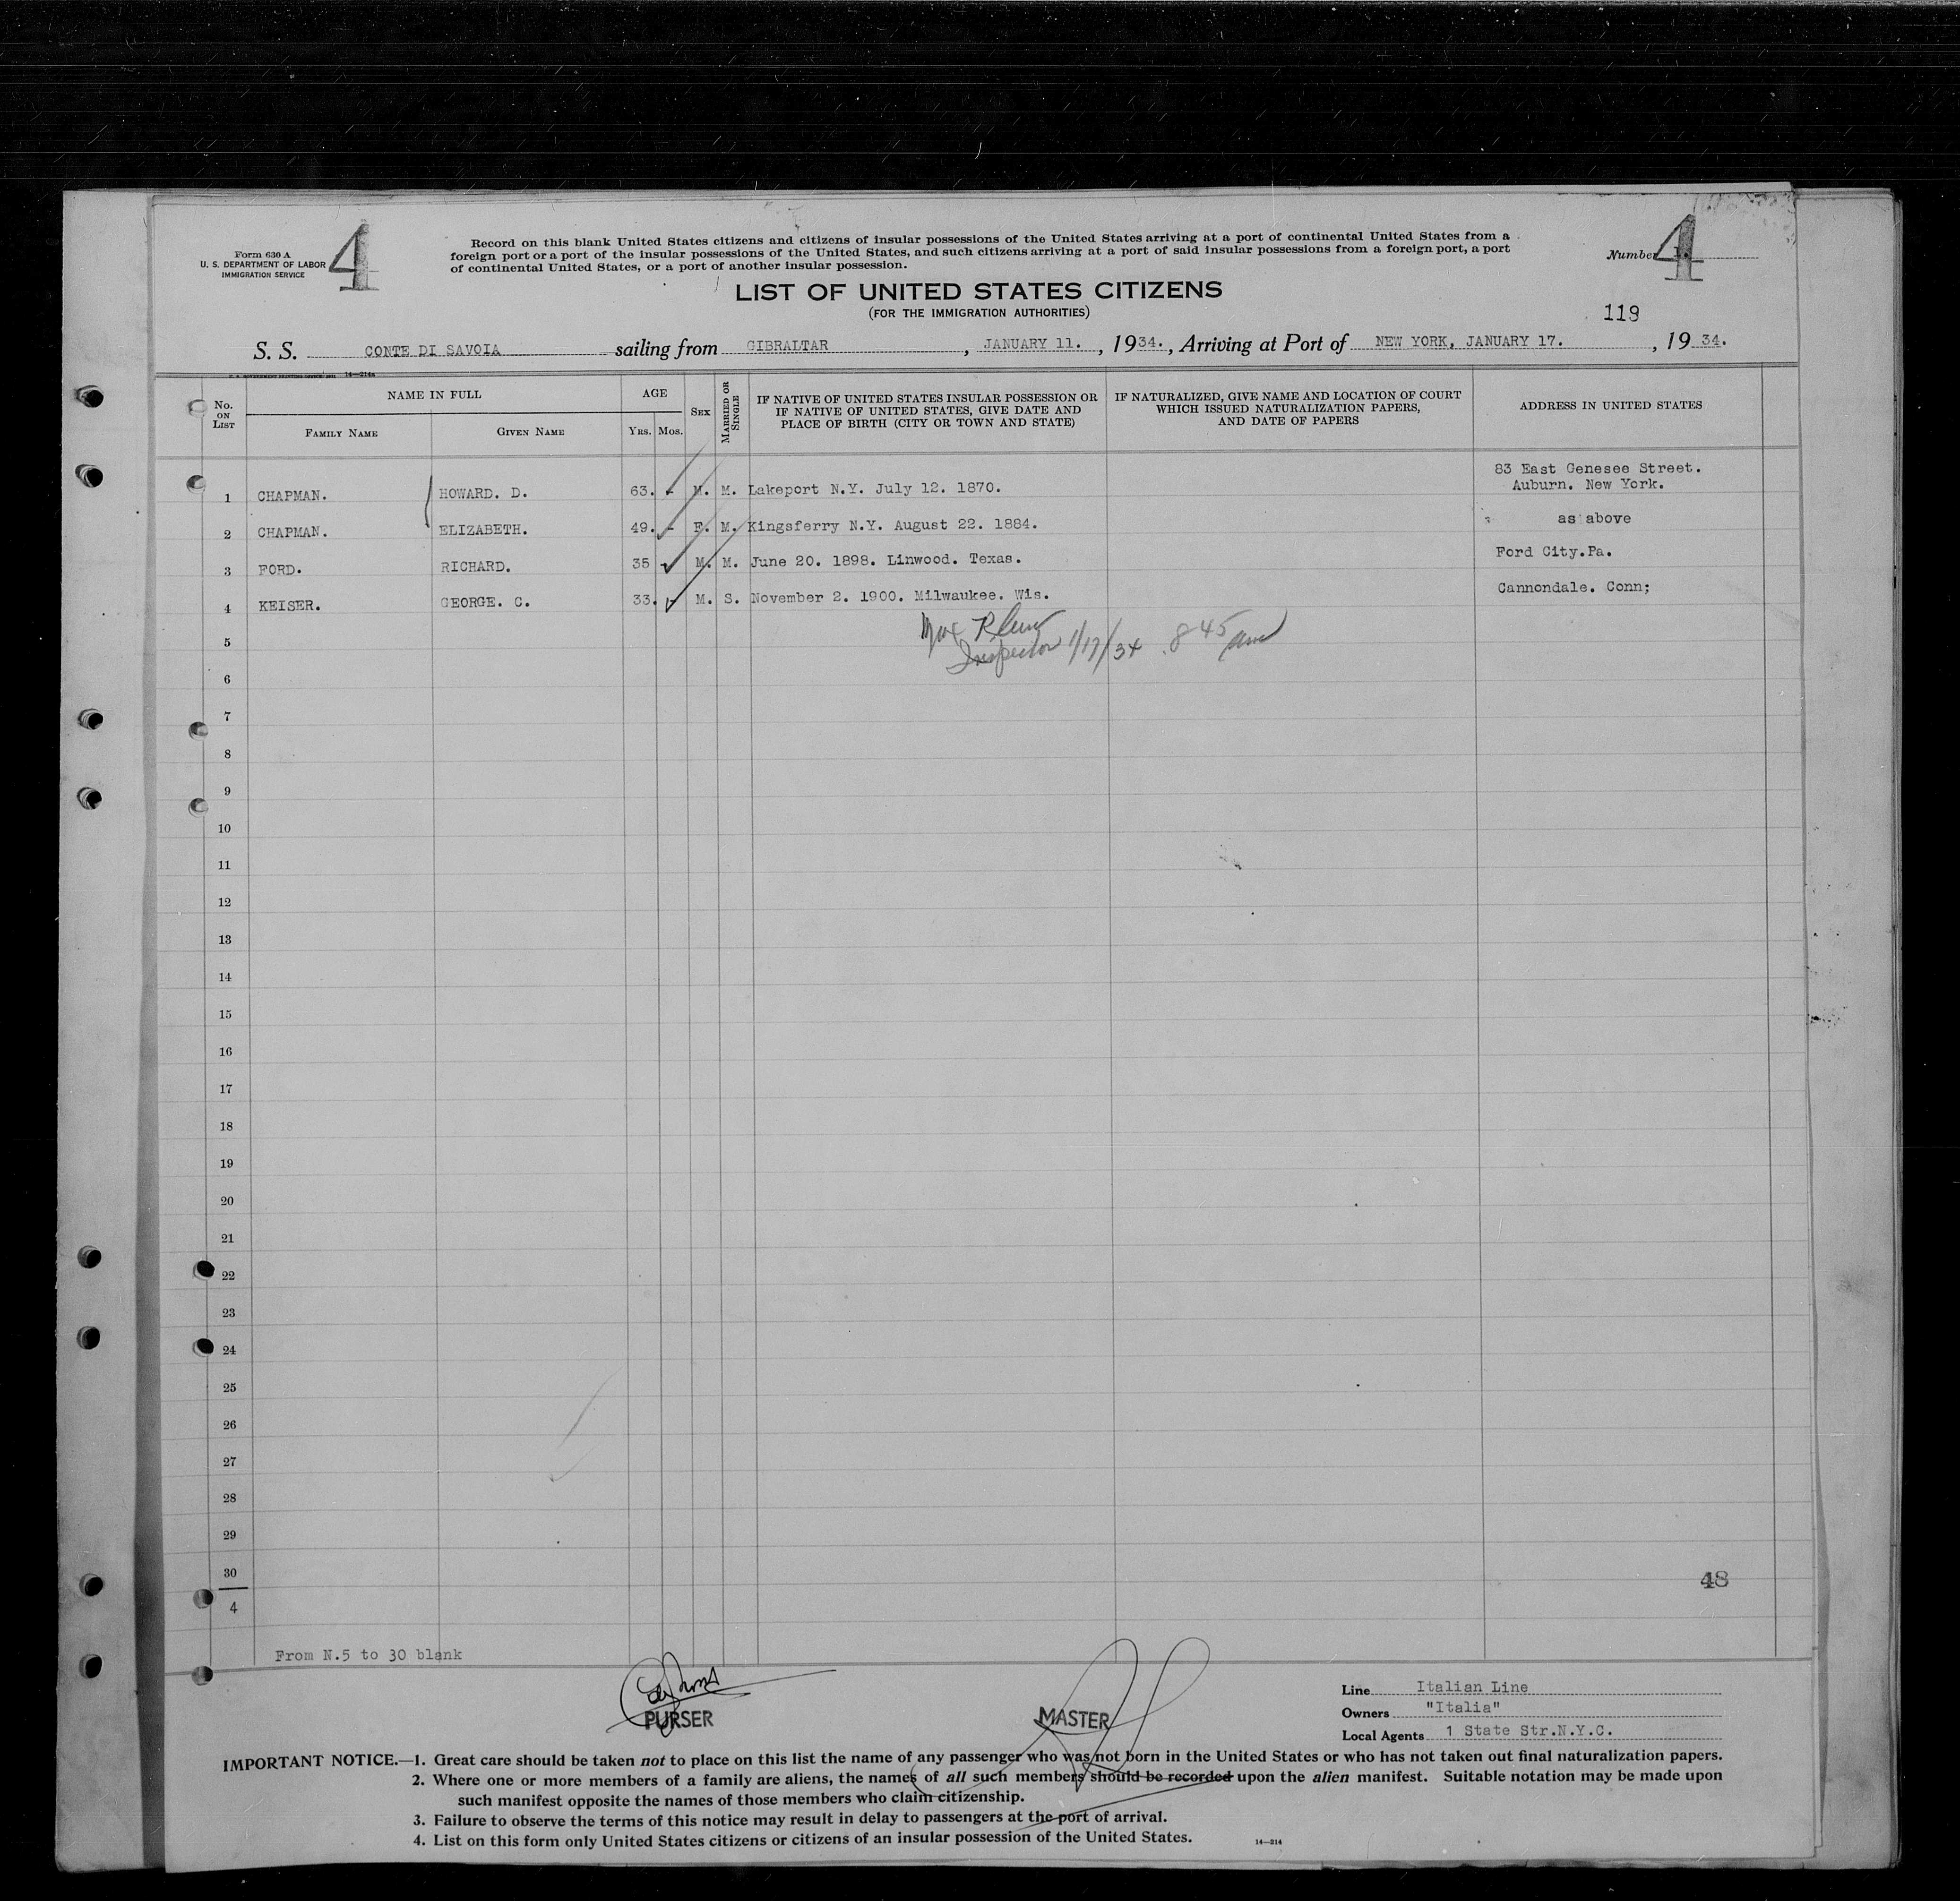 Form 630 A
U. S. DEPARTMENT OF LABOR
IMMIGRATION SERVICE
4
Record on this blank United States citizens and citizens of insular possessions of the United States arriving at a port of continental United States from a
foreign port or a port of the insular possessions of the United States, and such citizens arriving at a port of said insular possessions from a foreign port, a port
of continental United States, or a port of another insular possession.
Number 4
LIST OF UNITED STATES CITIZENS
(FOR THE IMMIGRATION AUTHORITIES)
119
S. S. CONTE DI SAVOIA sailing from GIBRALTAR, JANUARY 11. , 1934. , Arriving at Port of NEW YORK, JANUARY 17. , 19 34.
14—214a
No. ON LIST
NAME IN FULL
FAMILY NAME
GIVEN NAME
AGE
YRS. MOS.
SEX
MARRIED OR SINGLE
IF NATIVE OF UNITED STATES INSULAR POSSESSION OR
IF NATIVE OF UNITED STATES, GIVE DATE AND
PLACE OF BIRTH (CITY OR TOWN AND STATE)
IF NATURALIZED, GIVE NAME AND LOCATION OF COURT
WHICH ISSUED NATURALIZATION PAPERS,
AND DATE OF PAPERS
ADDRESS IN UNITED STATES
1 CHAPMAN. HOWARD. D. 63. - M. M. Lakeport N.Y. July 12. 1870. 83 East Genesee Street.
Auburn. New York.
2 CHAPMAN. ELIZABETH. 49. - F. M. Kingsferry N.Y. August 22. 1884. as above
3 FORD. RICHARD. 35 M. M. June 20. 1898. Linwood. Texas. Ford City.Pa.
4 KEISER. GEORGE. C. 33. - M. S. November 2. 1900. Milwaukee. Wis. Cannondale. Conn;
Inspector 1/17/34 8 45 am
5
6
7
8
9
10
11
12
13
14
15
16
17
18
19
20
21
22
23
24
25
26
27
28
29
30
4
48
From N.5 to 30 blank
PURSER
MASTER
Line Italian Line
Owners "Italia"
Local Agents 1 State Str.N.Y.C.
IMPORTANT NOTICE.—1. Great care should be taken not to place on this list the name of any passenger who was not born in the United States or who has not taken out final naturalization papers.
2. Where one or more members of a family are aliens, the names of all such members should be recorded upon the alien manifest. Suitable notation may be made upon
such manifest opposite the names of those members who claim citizenship.
3. Failure to observe the terms of this notice may result in delay to passengers at the port of arrival.
4. List on this form only United States citizens or citizens of an insular possession of the United States.
14—214